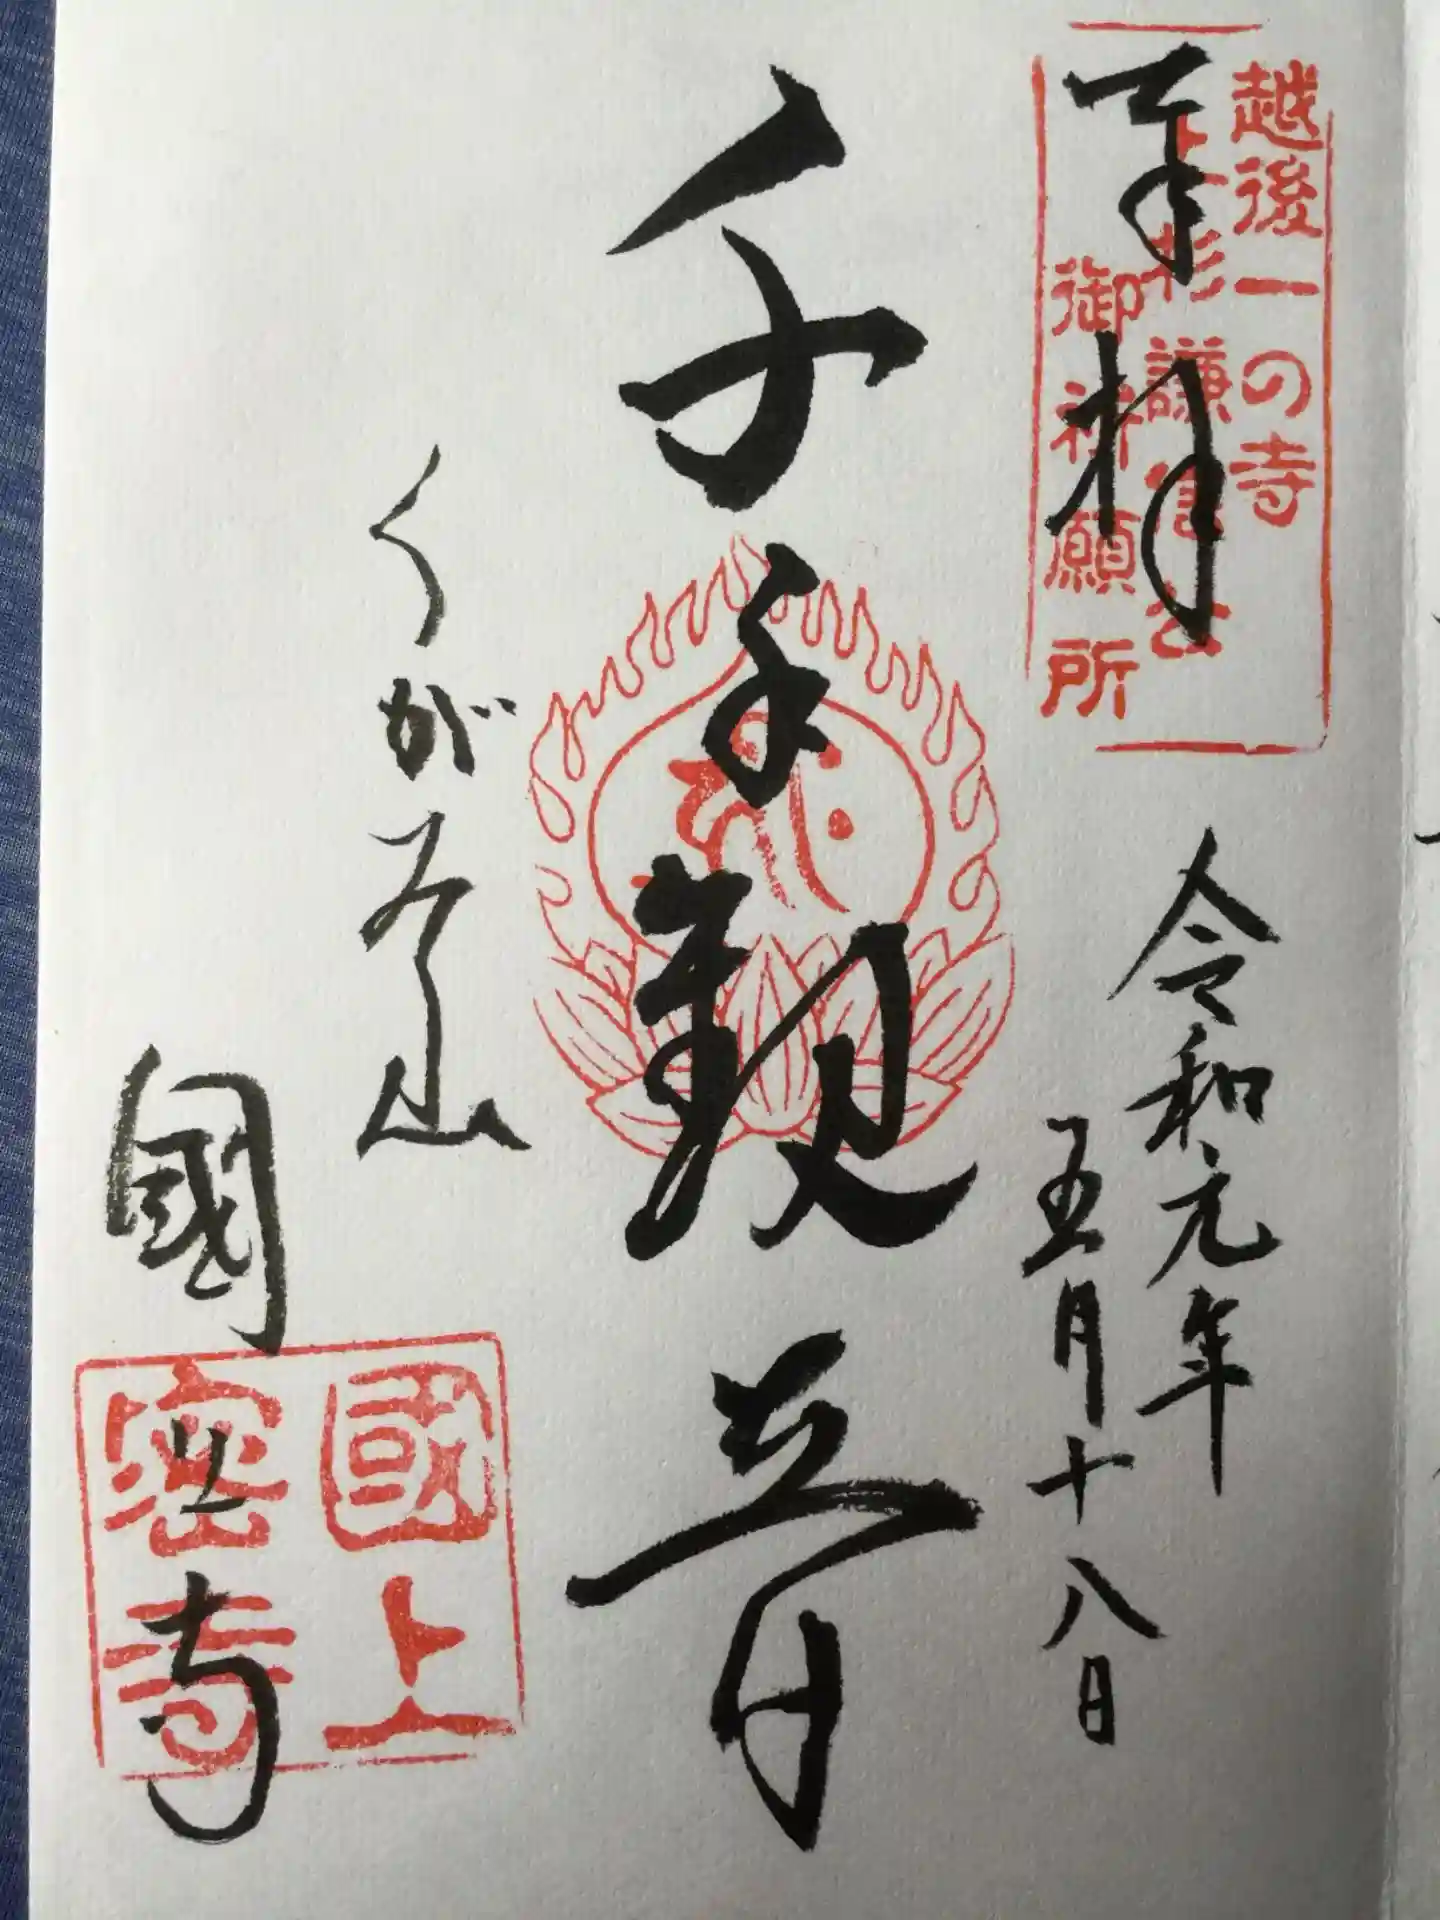 越後一の寺
上杉謙信公
御祈願所
奉拝
令和元年
五月十八日
千手観音
くがみ山
國上寺
國上
密寺